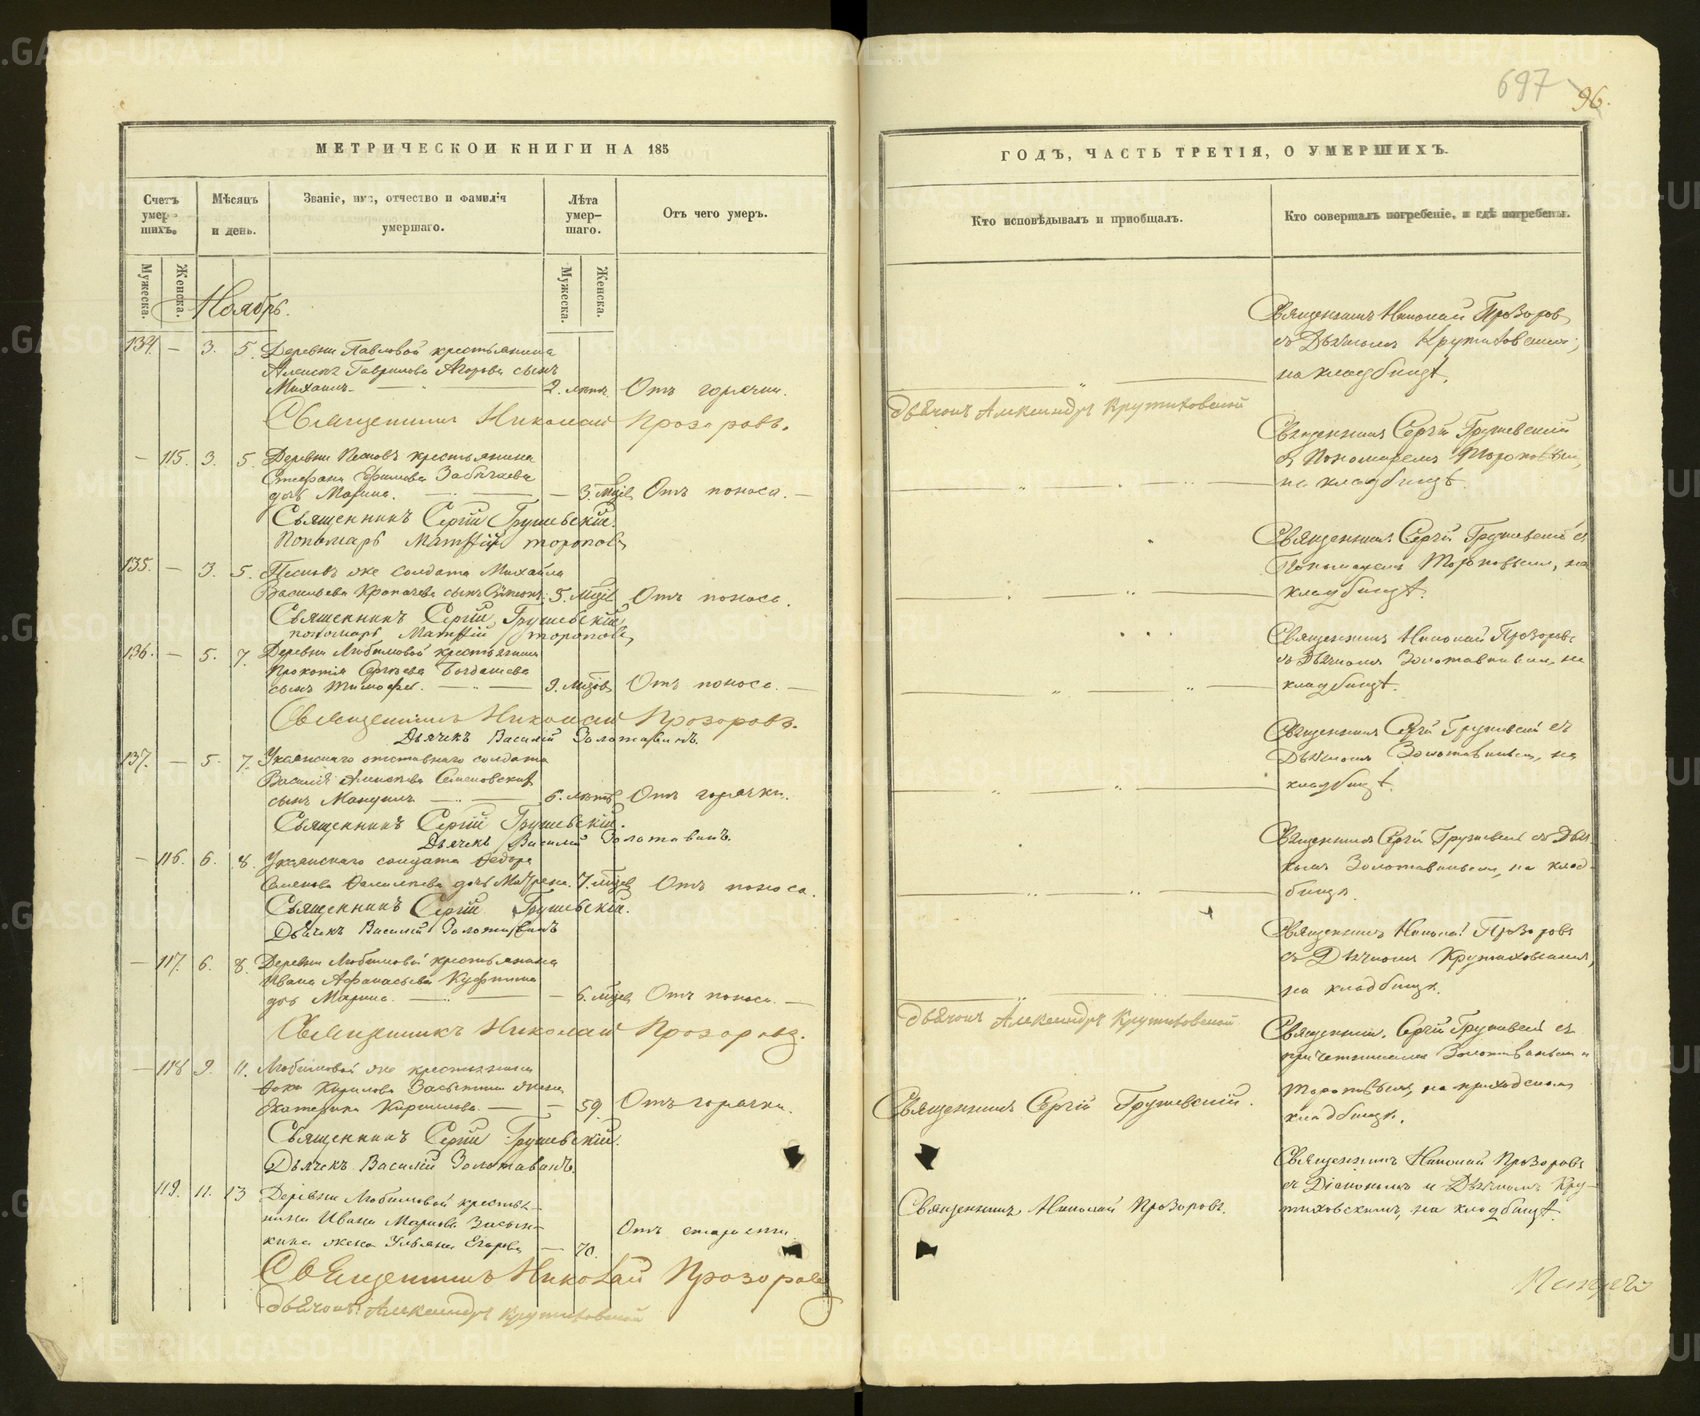 697 96.
МЕТРИЧЕСКОЙ КНИГИ НА 185
Счетъ умерших.
Мѣсяцъ и день.
Званіе, имя, отчество и фамилія умершаго.
Лѣта умершаго.
Отъ чего умеръ.
Мужеска.
Женска.
Мужеска.
Женска.
Ноябрь.
134. — 3. 5. Деревни Павловой крестьянина
Алексѣя Гаврилова Егорова сынъ
Михаилъ. 2. лѣтъ Отъ горячки.
Священникъ Николай Прозоровъ.
— 115. 3. 5. Деревни Песковъ крестьянина
Стефана Ефимова
дочь Марина. — 3. Мцѣв Отъ поноса. —
Священникъ Сергій Грушевскій.
Пономарь Матѳій Тороповъ
135. — 3. 5. Песковъ же солдата Михаила
Васильева сынъ 5. Мцѣв Отъ поноса.
Священникъ Сергій Грушевскій,
пономарь Матѳій Тороповъ,
136. — 5. 7. Деревни Любимовой крестьянина
Прокопія Сергѣева Богдашева
сынъ Тимофей. 9. мцѣв Отъ поноса. —
Священникъ Николай Прозоровъ.
Дьячекъ Василій Золотавинъ.
137. — 5. 7. отставнаго солдата
Василія Алексѣева
сынъ 6. лѣтъ Отъ горячки.
Священникъ Сергій Грушевскій.
Дьячекъ Василій Золотавинъ.
— 116. 6. 8. солдата Федора
Семенова дочь Матрена. 7. мцѣв Отъ поноса.
Священникъ Сергій Грушевскій.
Дьячекъ Василій Золотавинъ
— 117. 6. 8. Деревни Любимовой крестьянина
Ивана Афанасьева
дочь Марина. — 6. мцѣв Отъ поноса. —
Священникъ Николай Прозоровъ.
— 118 9. 11. Любимовой же крестьянина
Фоки Кирилова жена
Екатерина — 59. Отъ горячки.
Священникъ Сергій Грушевскій.
Дьячекъ Василій Золотавинъ.
119. 11. 13 Деревни Любимовой крестья-
нина Ивана Маркова
жена Ульяна Егорова — 70. Отъ старости.
Священникъ Николай Прозоровъ
дьячокъ Александръ Крутиховской
ГОДЪ, ЧАСТЬ ТРЕТІЯ, О УМЕРШИХЪ.
Кто исповѣдывалъ и пріобщалъ.
Кто совершалъ погребеніе, и гдѣ погребены.
Священникъ Николай Прозоровъ
съ Дьячкомъ Крутиховскимъ,
на кладбищѣ.
дьячокъ Александръ Крутиховской
Священникъ Сергій Грушевскій
съ Пономаремъ Тороповымъ,
на кладбищѣ.
Священникъ Сергій Грушевскій съ
Пономаремъ Тороповымъ, на
кладбищѣ.
Священникъ Николай Прозоровъ
съ Дьячкомъ Золотавинымъ, на
кладбищѣ.
Священникъ Сергій Грушевскій съ
Дьячкомъ Золотавинымъ, на
кладбищѣ.
Священникъ Сергій Грушевскій съ Дьяч-
комъ Золотавинымъ, на клад-
бищѣ.
Священникъ Николай Прозоровъ
съ Дьячкомъ Крутиховскимъ,
на кладбищѣ.
дьячокъ Александръ Крутиховской
Священникъ Сергій Грушевскій.
Священникъ Сергій Грушевскій съ
причетниками Золотавинымъ и
Тороповымъ, на приходскомъ
кладбищѣ.
Священникъ Николай Прозоровъ.
Священникъ Николай Прозоровъ
съ Діакономъ и Дьячкомъ Кру-
тиховскимъ, на кладбищѣ.